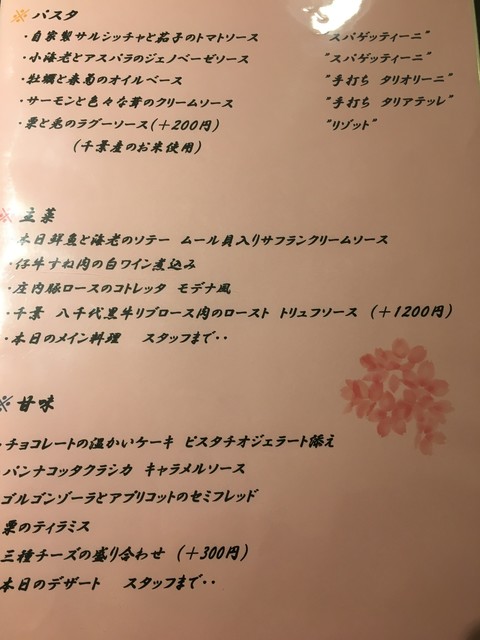 ※ パスタ
・自家製サルシッチャと茄子のトマトソース "スパゲッティーニ"
・小海老とアスパラのジェノベーゼソース "スパゲッティーニ"
・牡蠣と春菊のオイルベース "手打ち タリオリーニ"
・サーモンと色々な茸のクリームソース "手打ち タリアテッレ"
・栗と兎のラグーソース(+200円) "リゾット"
(千葉産のお米使用)
※ 主菜
・本日鮮魚と海老のソテー ムール貝入りサフランクリームソース
・仔牛すね肉の白ワイン煮込み
・庄内豚ロースのコトレッタ モデナ風
・千葉 八千代黒牛リブロース肉のロースト トリュフソース (+1200円)
・本日のメイン料理 スタッフまで・・
※ 甘味
・チョコレートの温かいケーキ ピスタチオジェラート添え
パンナコッタクラシカ キャラメルソース
ゴルゴンゾーラとアプリコットのセミフレッド
栗のティラミス
三種チーズの盛り合わせ (+300円)
本日のデザート スタッフまで・・